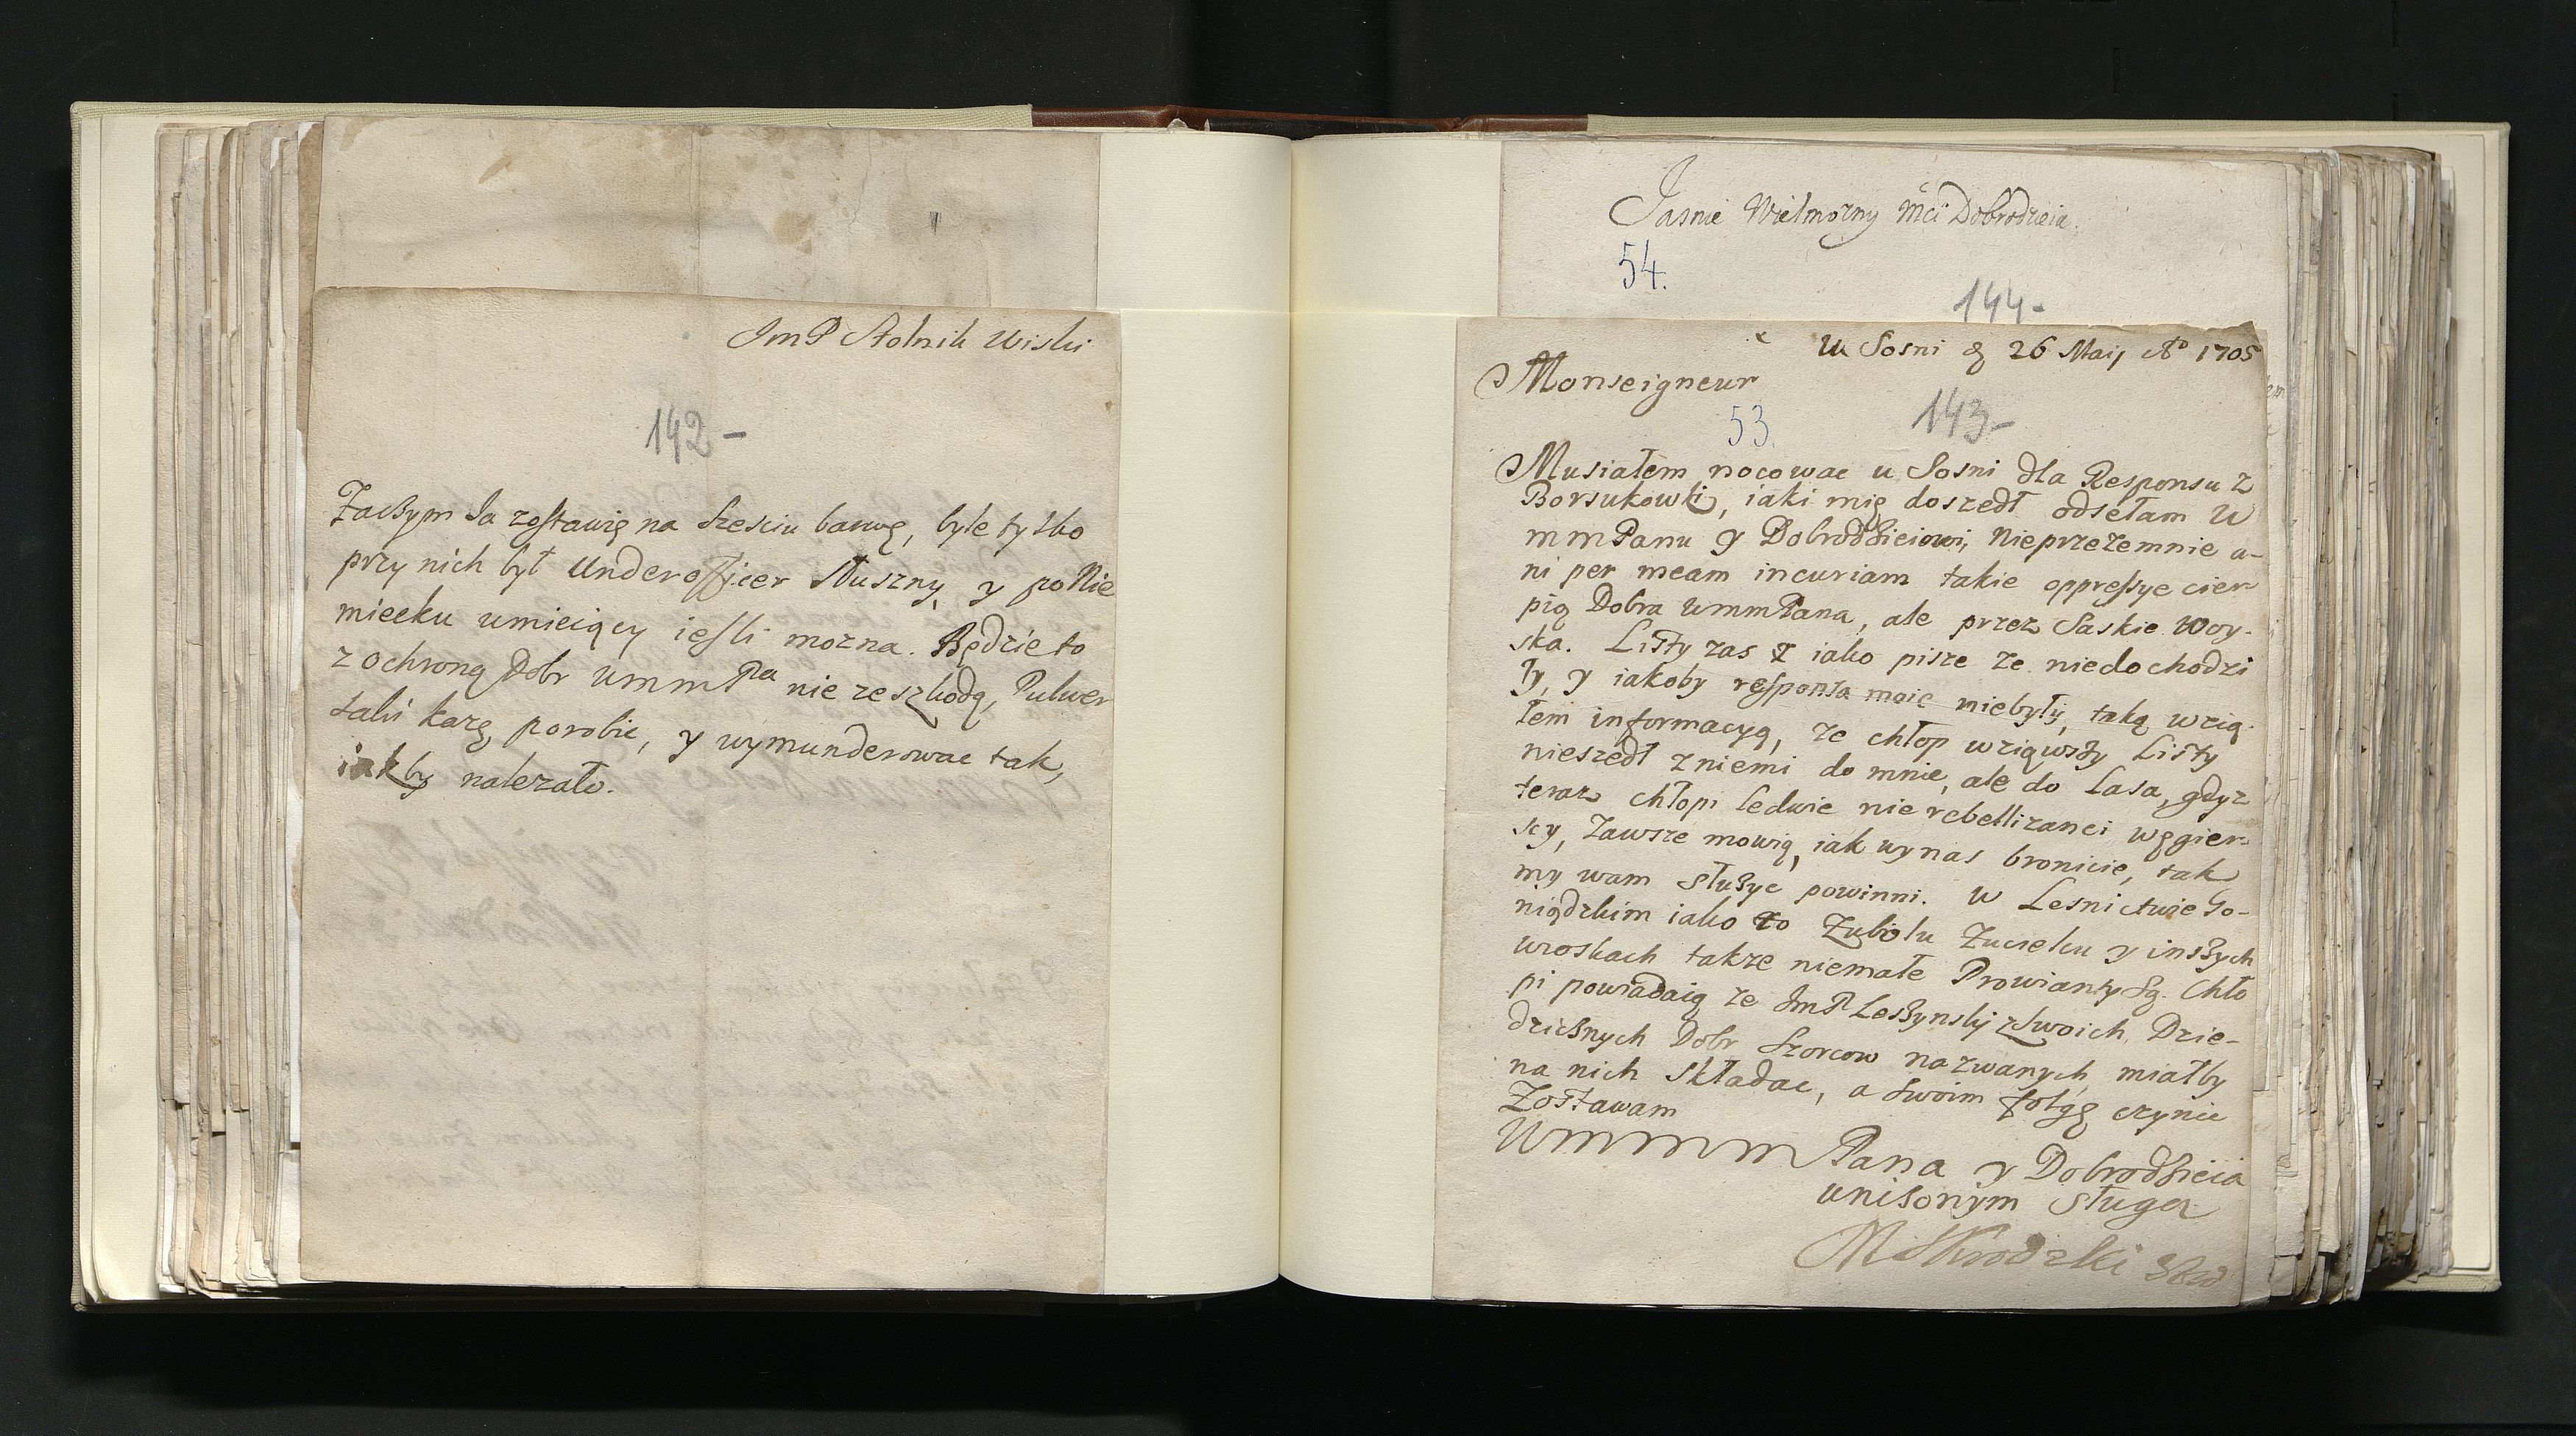 ImP Stolnik Wiski
142 –
Zaczym Ja zostawię na szesciu barwę, byle tylko
przy nich był Underofficer słuszny, y po Nie
miecku umieiący iesli mozna. Będzie to
z ochroną Dobr UmmPa nie ze szkodą, Pulwer
taki karę porobic, y wymunderowac tak,
iakby nalezało.
Jasnie Wielmozny Mci Dobrodzieiu.
54.
144-
w Sosni d 26 Maij Ao 1705
Monseigneur
53.
143-
Musiałem nocowac u Sosni dla Responsu z
Borsukowki, iaki mię doszedł odsełam W
mmPanu y Dobrodzieiowi, Nieprzezemnie a-
ni per meam incuriam takie oppressye cier
pią Dobra WmmPana, ale przez Saskie Woy-
ska. Listy zas iako pisze ze niedochodzi
ły, y iakoby responsa moie niebyły, taką wzią-
łem informacyą, ze chłop wziąwszy Listy
nieszedł z niemi do mnie, ale do Lasa, gdyz
teraz chłopi ledwie nie rebellizanci węgier
scy, Zawsze mowią, iak wy nas bronicie, tak
my wam słuzyc powinni. W Lesnictwie Go-
niądzkim iako to Zubolu Zucielcu y inszych
wioskach takze niemałe Prowianty Są. Chło
pi powiadaią ze ImP Leszynskij z Swoich Dzie-
dzicznych Dobr Szorcow nazwanych miałby
na nich składac, a swoim folgę czynic
Zostawam
Wmmmm Pana y Dobrodzieia
unizonym sługa
MSkrodzki